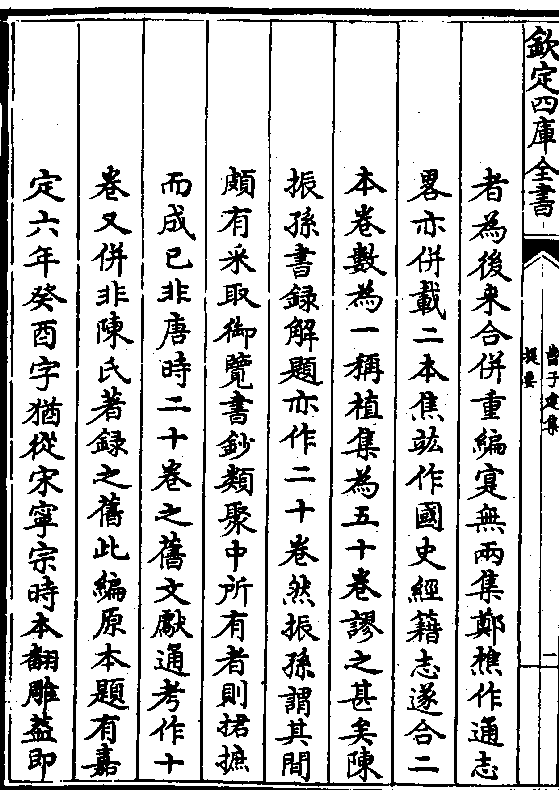 欽定四庫全書
曹子建集
提要
一
者為後來合併重編寔無兩集鄭樵作通志
畧亦併載二本焦竑作國史經籍志遂合二
本卷數為一稱植集為五十卷謬之甚矣陳
振孫書録解題亦作二十卷然振孫謂其間
頗有采取御覽書鈔類聚中所有者則捃摭
而成已非唐時二十卷之舊文獻通考作十
卷又併非陳氏著録之舊此編原本題有嘉
定六年癸酉字猶從宋寧宗時本翻雕葢即